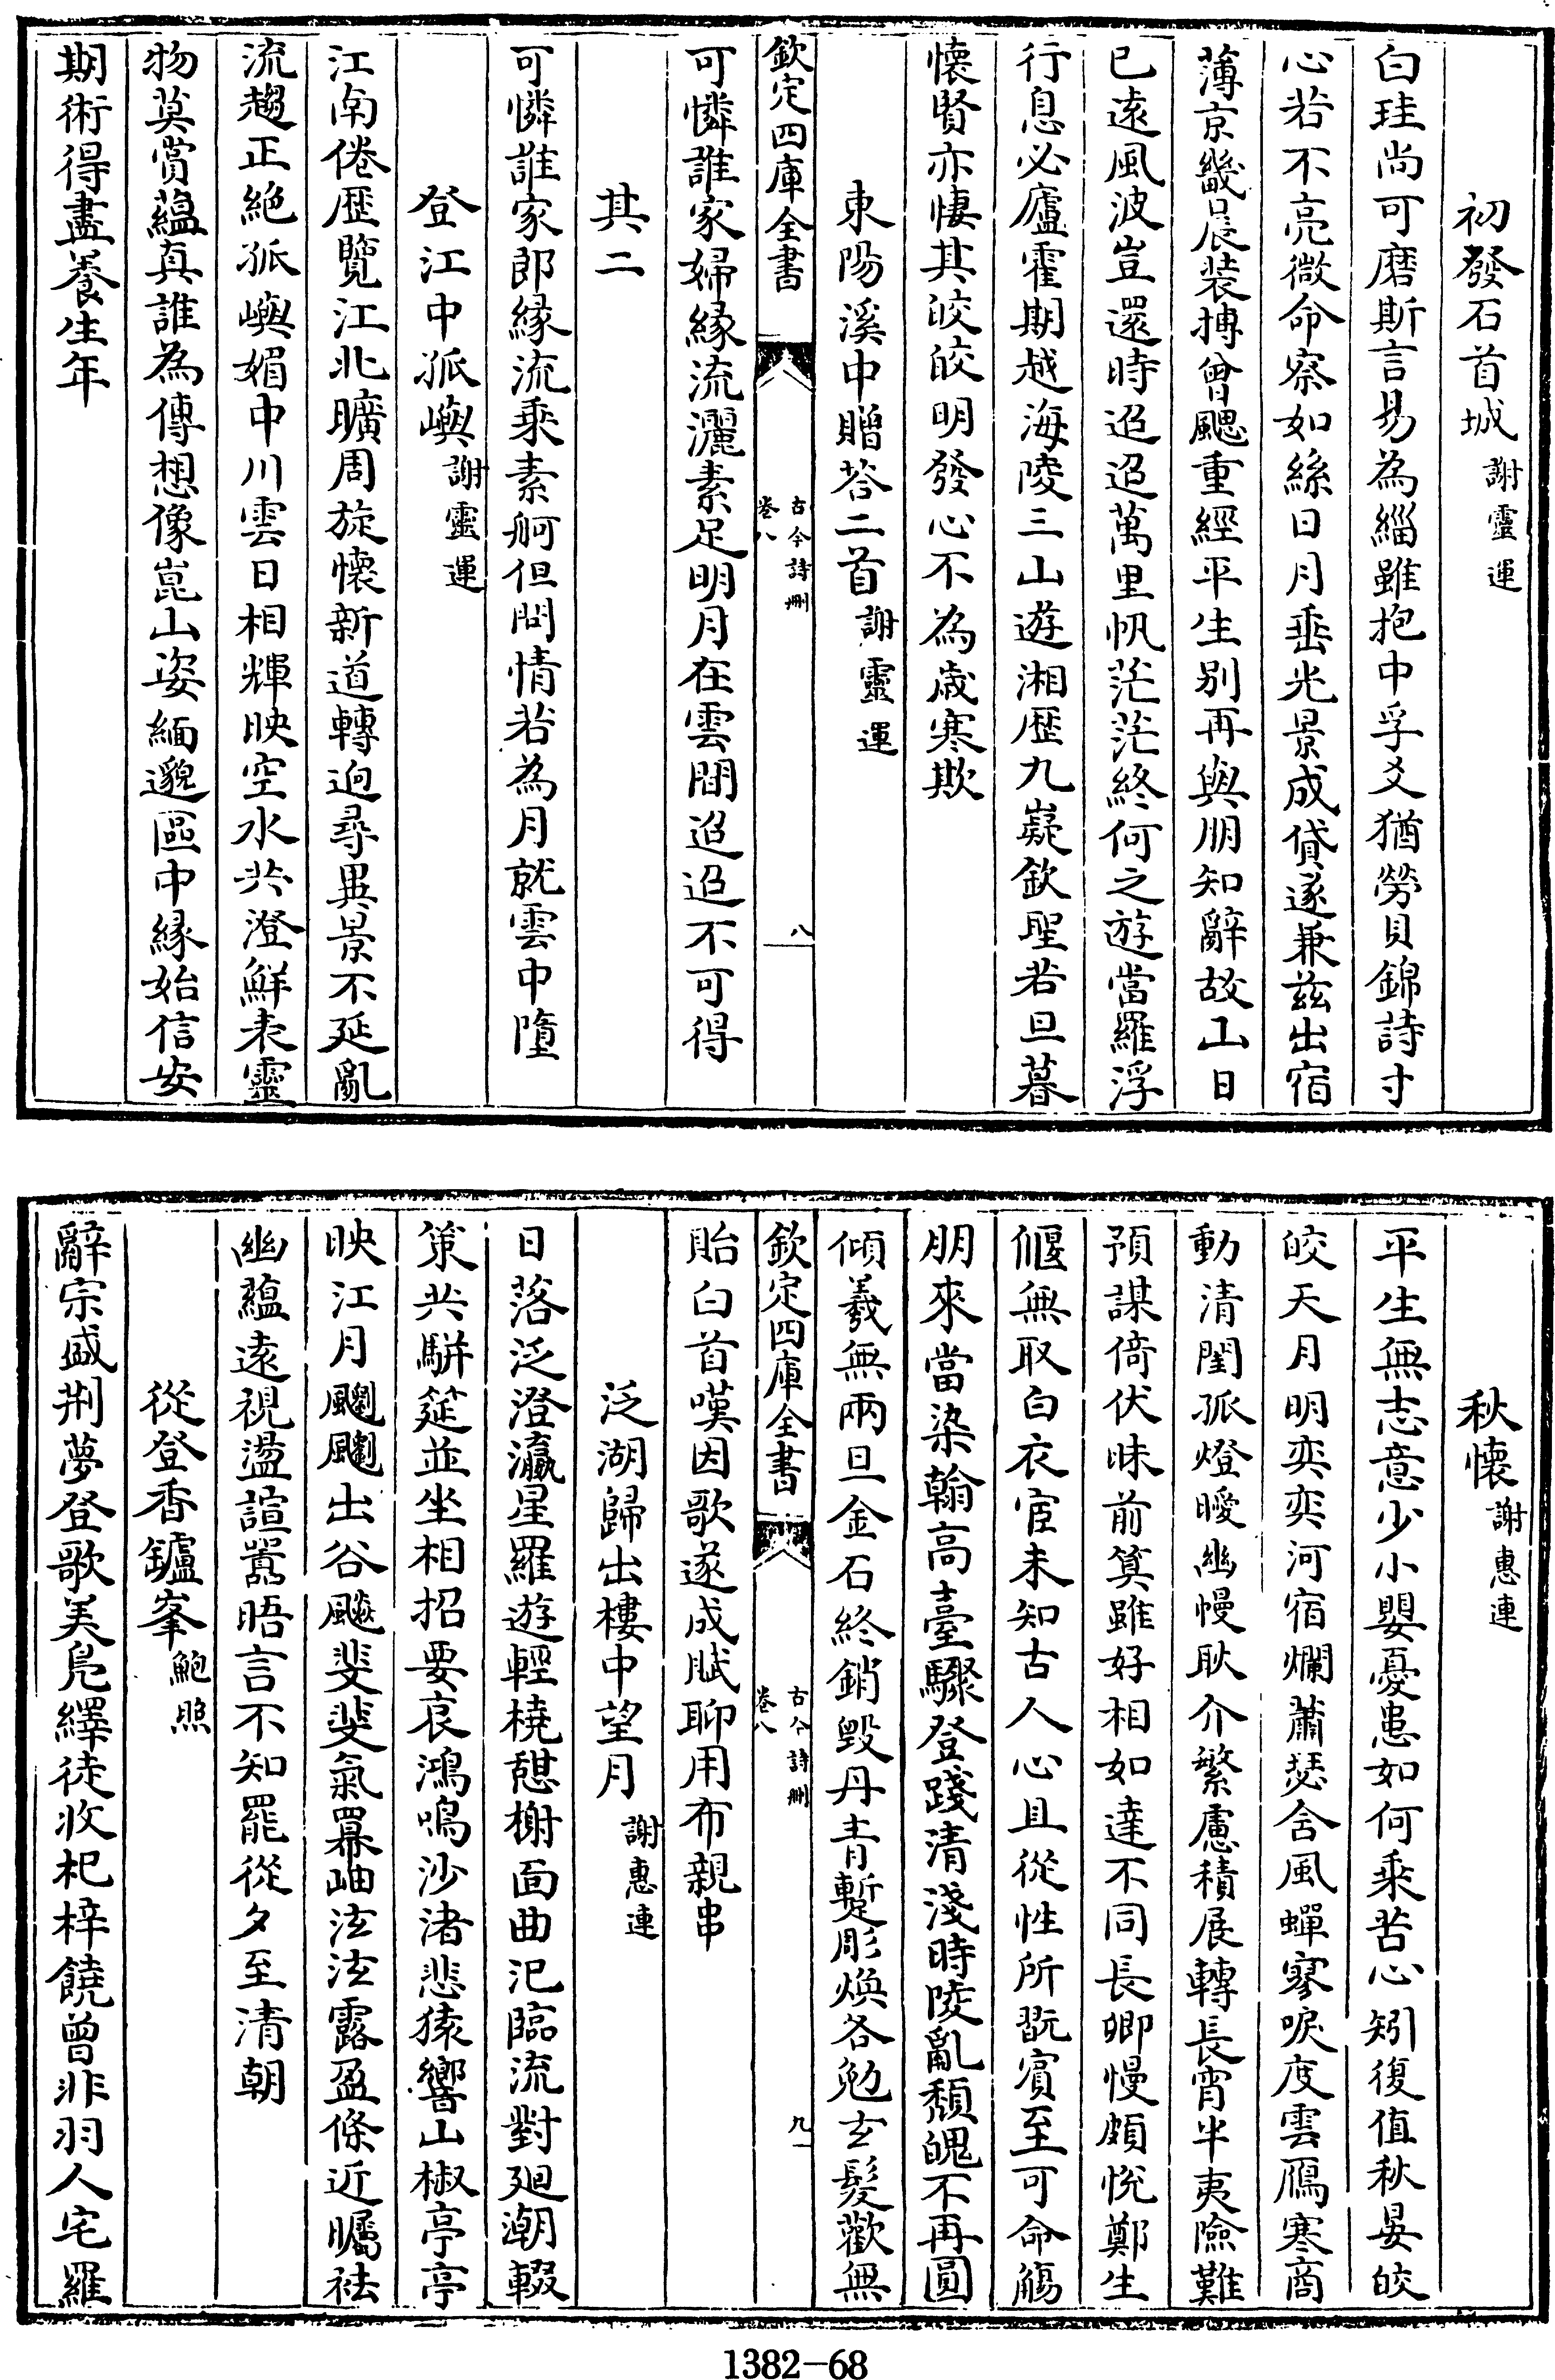 初發石首城謝靈運
白珪尚可磨斯言易為緇雖抱中孚爻猶勞貝錦詩寸
心若不亮微命察如絲日月垂光景成貸遂兼兹出宿
薄京畿晨装摶曾颸重經平生别再與朋知辭故山日
已遠風波豈還時迢迢萬里帆茫茫終何之遊當羅浮
行息必廬霍期越海陵三山遊湘歴九嶷欽聖若旦暮
懐賢亦悽其皎皎明發心不為歳寒欺
東陽溪中贈荅二首謝靈運
欽定四庫全書
古今詩刪
卷八
八
可憐誰家婦縁流灑素足明月在雲間迢迢不可得
其二
可憐誰家郎縁流乘素舸但問情若為月就雲中墮
登江中孤嶼謝靈運
江南倦歴覽江北曠周旋懐新道轉迥尋異景不延亂
流趨正絶孤嶼媚中川雲日相輝映空水共澄鮮表靈
物莫賞蘊真誰為傳想像崑山姿緬邈區中縁始信安
期術得盡養生年
秋懐謝惠連
平生無志意少小嬰憂患如何乘苦心矧復值秋晏皎
皎天月明奕奕河宿爛蕭瑟含風蟬寥唳度雲鴈寒商
動清閨孤燈曖幽幔耿介繁慮積展轉長宵半夷險難
預謀倚伏昧前筭雖好相如達不同長卿慢頗悅鄭生
偃無取白衣宦未知古人心且從性所翫賓至可命觴
朋來當染翰高臺驟登踐清淺時陵亂頽魄不再圓
傾羲無兩旦金石終銷毁丹青暫彫煥各勉玄髮歡無
欽定四庫全書
古今詩刪
卷八
九
貽白首嘆因歌遂成賦聊用布親串
泛湖歸出樓中望月謝惠連
日落泛澄瀛星羅遊輕橈憩榭面曲汜臨流對廻潮輟
策共駢筵並坐相招要哀鴻鳴沙渚悲猿響山椒亭亭
映江月飀飀出谷飈斐斐氣羃岫泫泫露盈條近矚祛
幽蘊遠視盪諠囂晤言不知罷從夕至清朝
從登香鑪峯鮑照
辭宗盛荆夢登歌美鳬繹徒收杞梓饒曾非羽人宅羅
1382－68